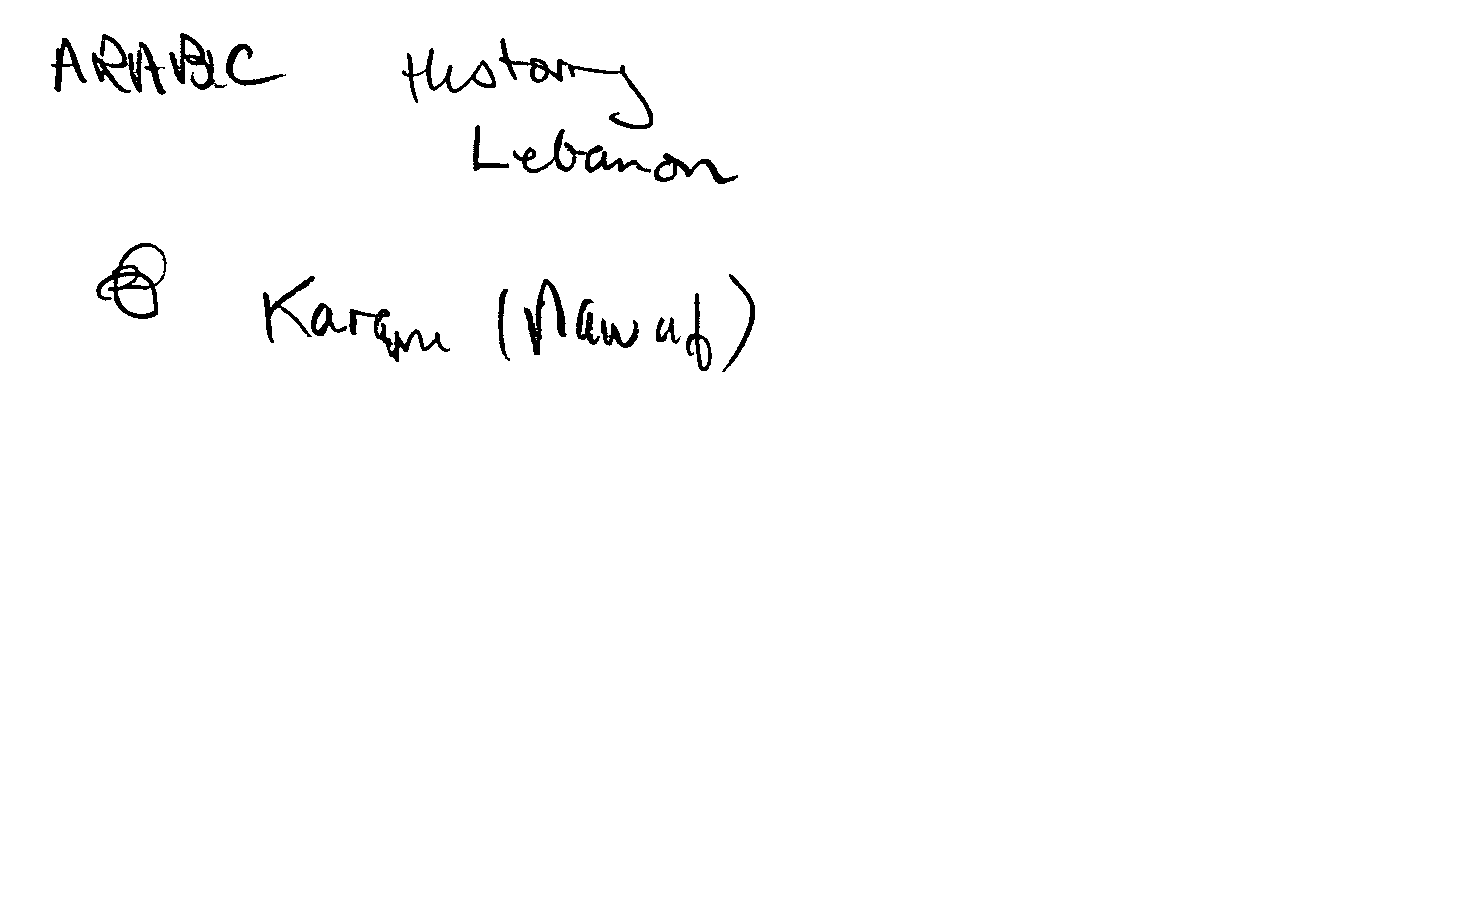 ARABIC History
Lebanon
Karam (Nawaf)